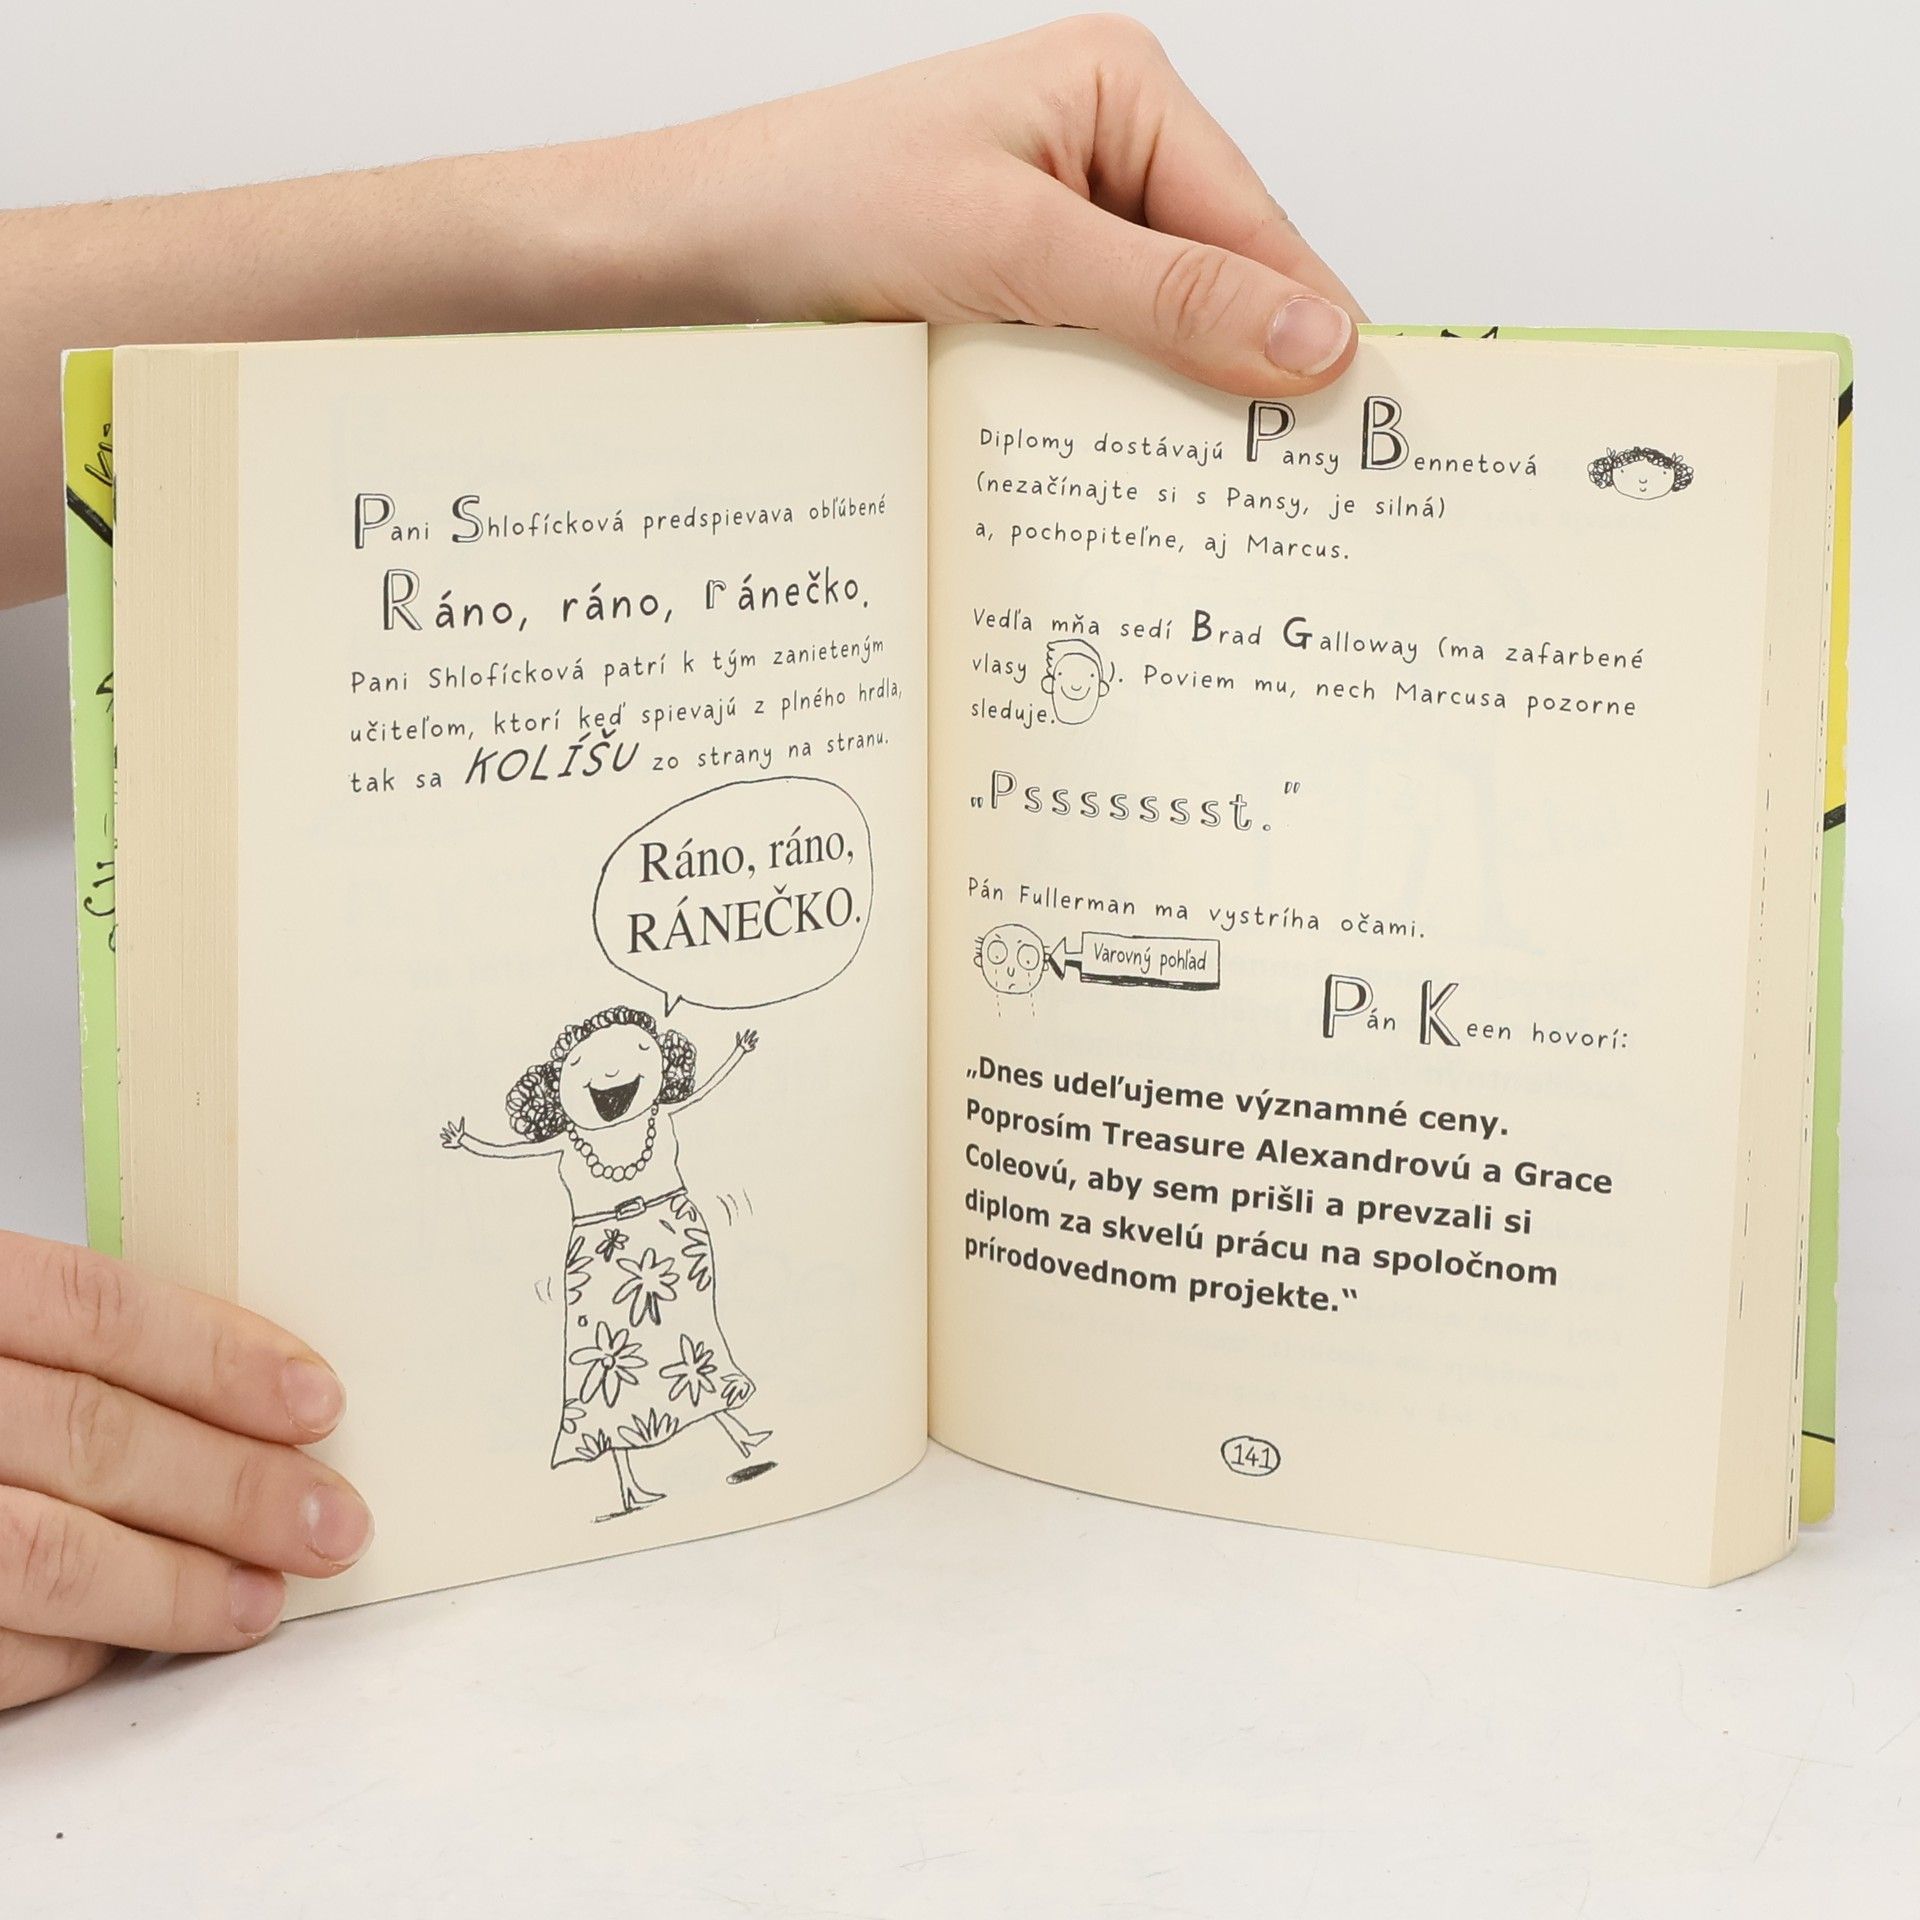 Pani Shlofícková predspievava obľúbené
Ráno, ráno, ránečko.
Pani Shlofícková patrí k tým zanieteným
učiteľom, ktorí keď spievajú z plného hrdla,
tak sa KOLÍŠU zo strany na stranu.
Ráno, ráno,
RÁNEČKO.
Diplomy dostávajú Pansy Bennetová
(nezačínajte si s Pansy, je silná)
a, pochopiteľne, aj Marcus.
Vedľa mňa sedí Brad Galloway (ma zafarbené
vlasy ). Poviem mu, nech Marcusa pozorne
sleduje.
„Psssssssst."
Pán Fullerman ma vystríha očami.
Varovný pohľad
Pán Keen hovorí:
„Dnes udeľujeme významné ceny.
Poprosím Treasure Alexandrovú a Grace
Coleovú, aby sem prišli a prevzali si
diplom za skvelú prácu na spoločnom
prírodovednom projekte.“
141